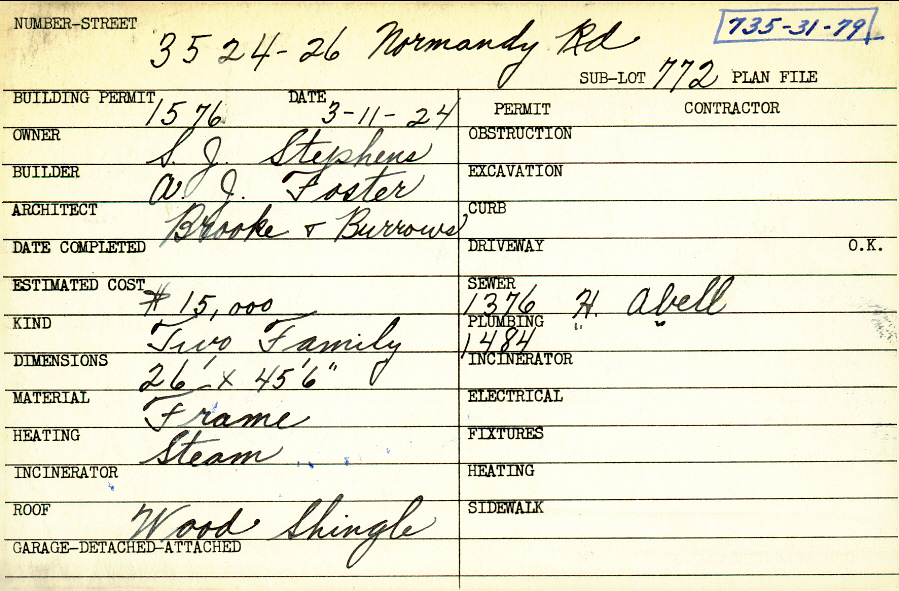 NUMBER-STREET 3524-26 Normandy Rd 735-31-79
SUB-LOT 772 PLAN FILE
BUILDING PERMIT 1576 DATE 3-11-24 PERMIT CONTRACTOR
OWNER S. J. Stephens OBSTRUCTION
BUILDER A. J. Foster EXCAVATION
ARCHITECT Brooke & Burrows CURB
DATE COMPLETED DRIVEWAY O.K.
ESTIMATED COST $15,000 SEWER 1376 H. Abell
KIND Two Family PLUMBING 1484 " "
DIMENSIONS 26' x 45'6" INCINERATOR
MATERIAL Frame ELECTRICAL
HEATING Steam FIXTURES
INCINERATOR HEATING
ROOF Wood Shingle SIDEWALK
GARAGE-DETACHED-ATTACHED